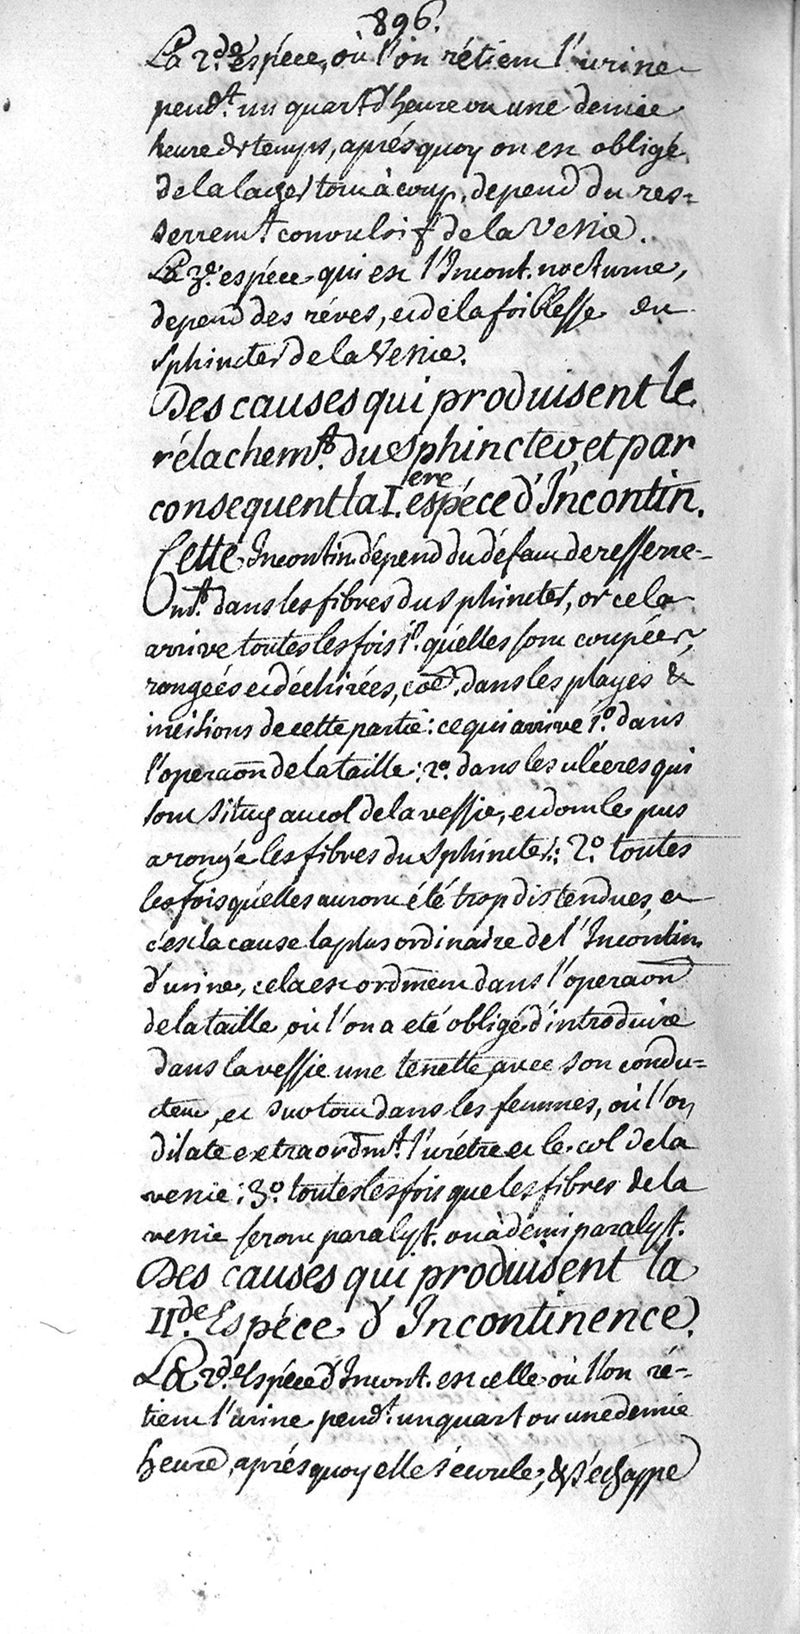 896.
La 2.de Espéce, où l'on rétient l'urine
pend.t un quart d'heure ou une demie
heure de temps, aprés quoy on est obligé
de la lacher tout à coup, depend du res-
serrem.t convulsif de la Vessie.
La 3.e espéce qui est l'Incont. nocturne,
depend des réves, et de la foiblesse du
sphincter de la Vessie.
Des causes qui produisent le
rélachem.t du Sphincter, et par
consequent la I.ere espéce d'Incontin.
Cette Incontin. dépend du défaut de resserre-
m.t dans les fibres du Sphincter, or cela
arrive toutes les fois 1.o qu'elles sont coupées,
rongées et déchirées, coe. dans les playes &
incisions de cette partie: ce qui arrive 1.o dans
l'operaon de la taille: 2.o dans les ulceres qui
sont situez au col de la vessie, et dont le pus
a rongé les fibres du Sphincter: 2.o toutes
les fois qu'elles auront été trop distendues, et
c'est la cause la plus ordinaire de l'Incontin.
d'urine, cela est ordmem.t dans l'operaon
de la taille, où l'on a eté obligé d'introduire
dans la vessie une tenette, avec son condu-
cteur, et surtout dans les femmes, où l'on
dilate extraordm.t l'urétre et le col de la
vessie: 3.o toutes les fois que les fibres de la
vessie seront paralyt. ou à demi paralyt.
Des causes qui produisent la
II.de Espéce d'Incontinence.
La 2.de Espéce d'Incont. est celle où l'on ré-
tient l'urine pend.t un quart ou une demie
heure, aprés quoy elle s'écoule, & s'échappe